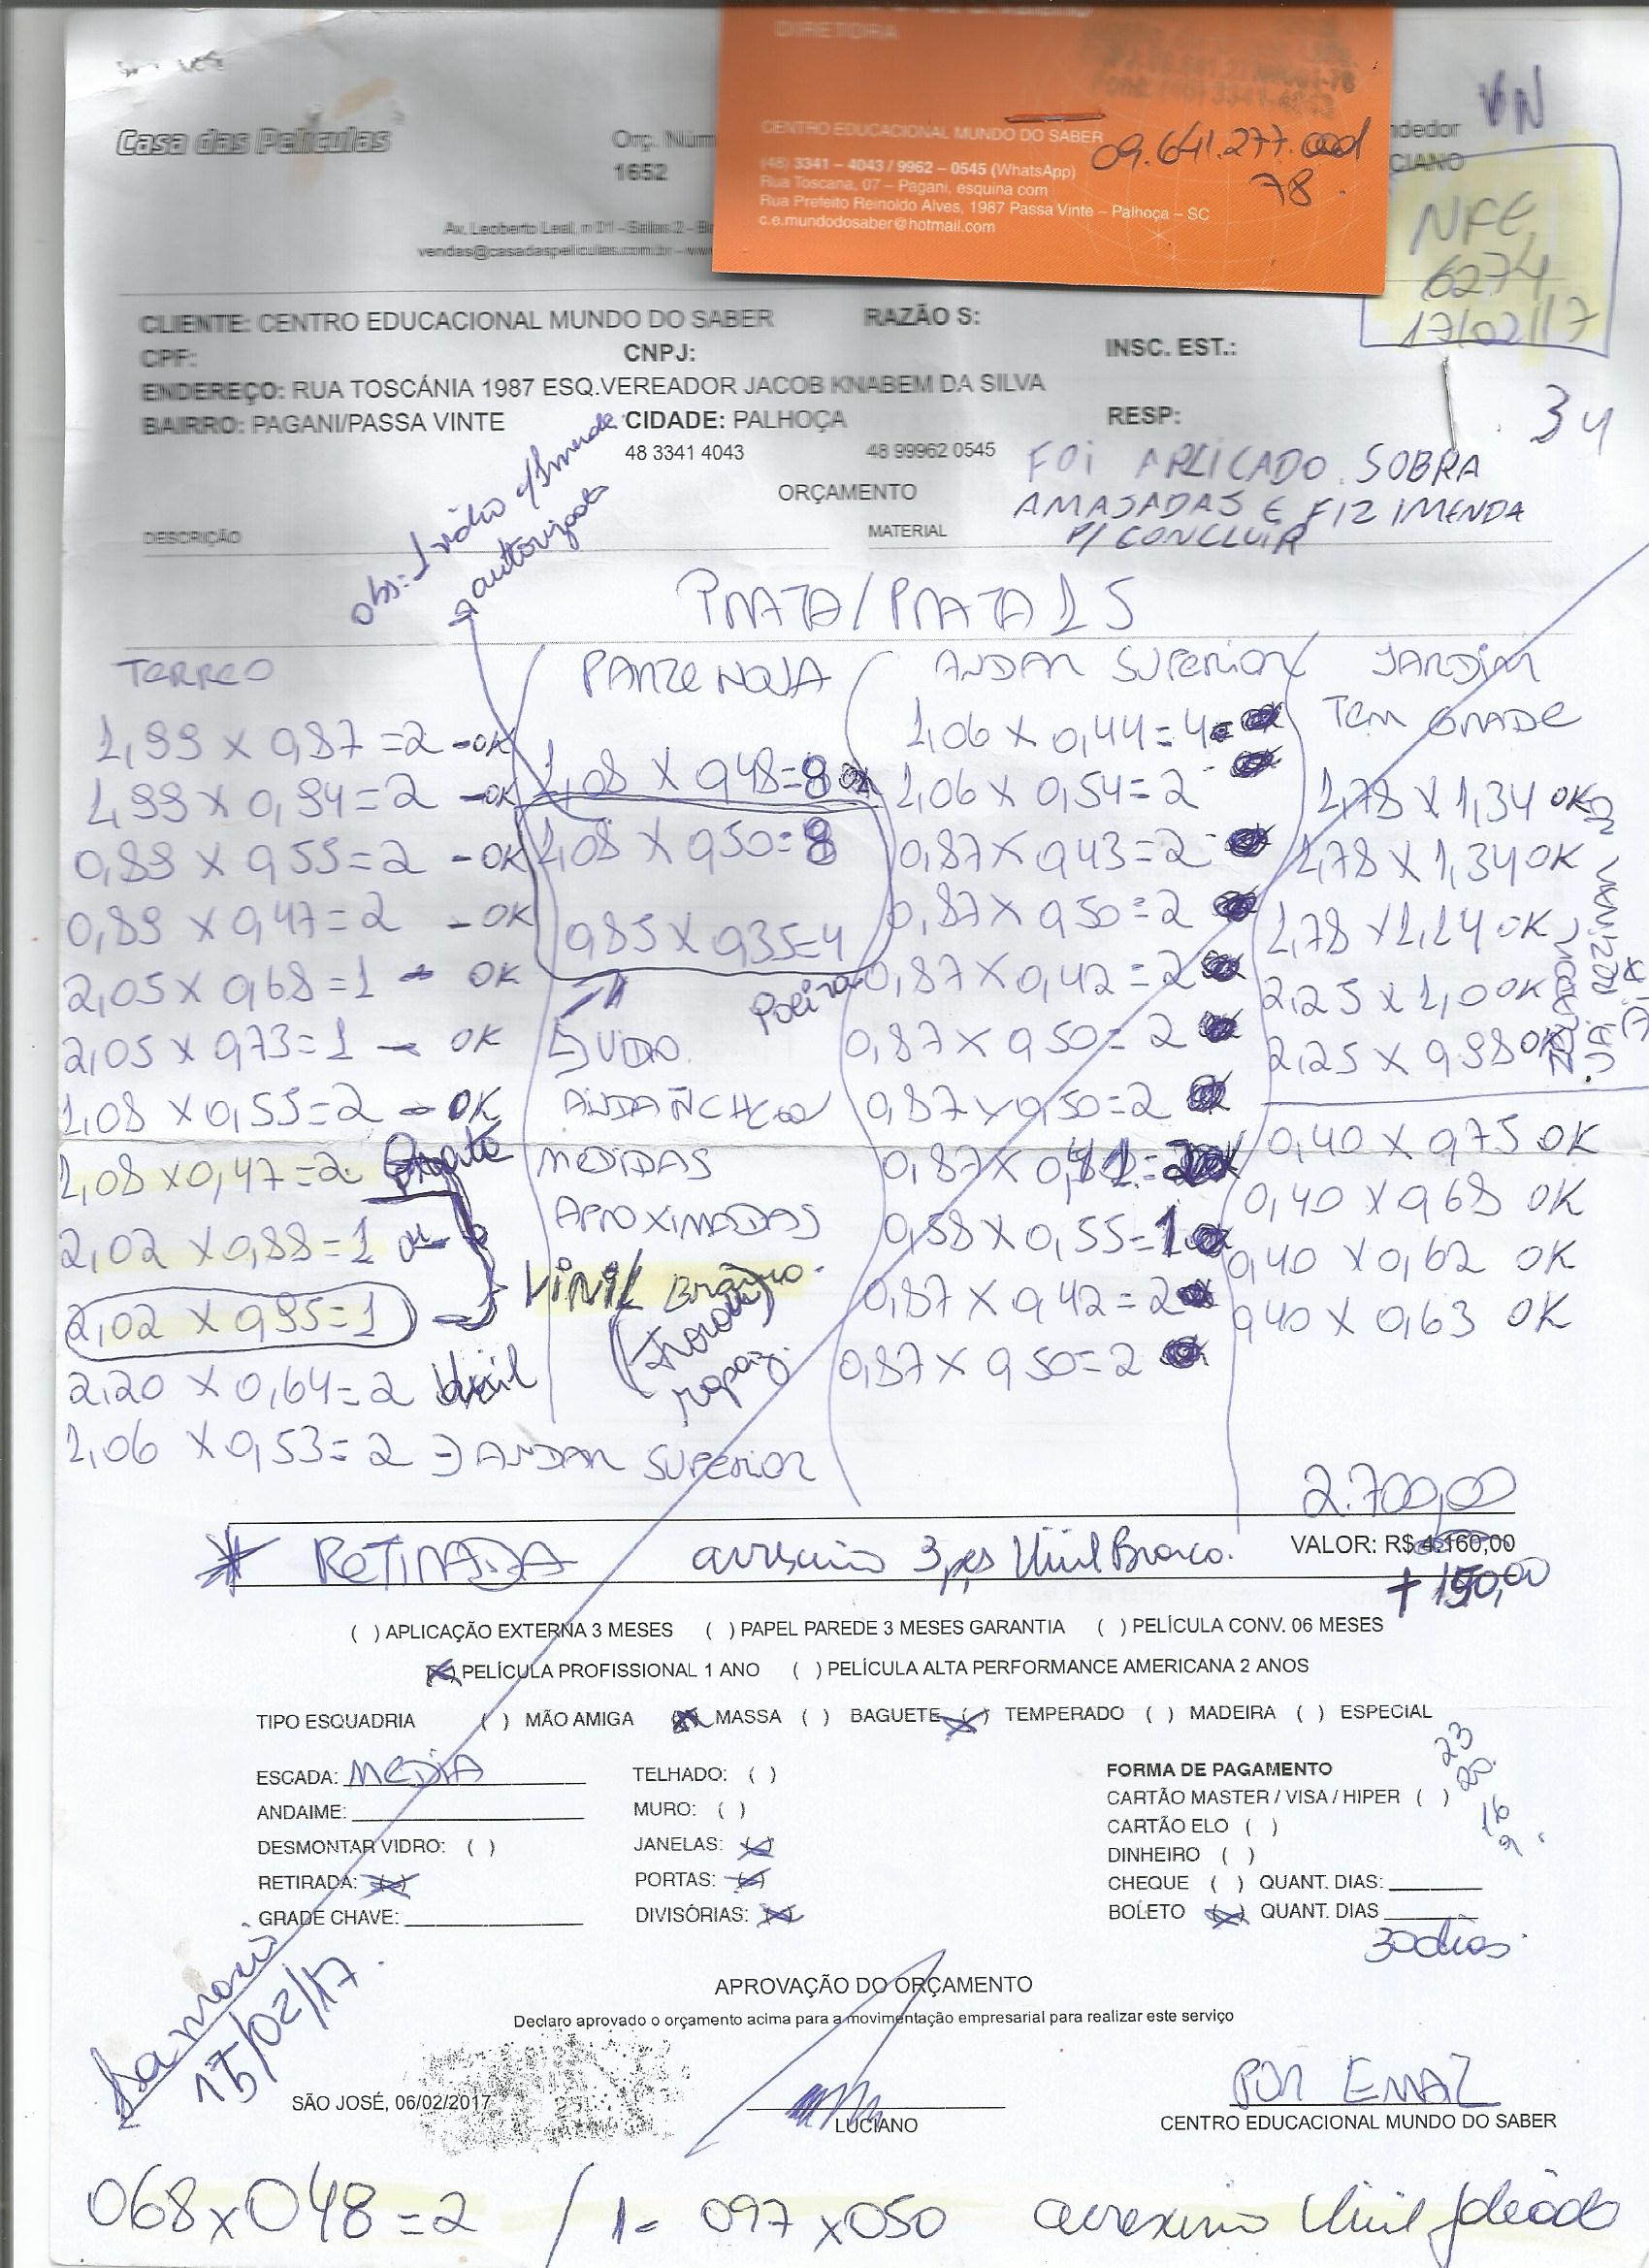 DIRETORA
VN
Casa das Películas
Orç. Núm
1652
CENTRO EDUCACIONAL MUNDO DO SABER
(48) 3341 – 4043 / 9962 – 0545 (WhatsApp)
Rua Toscana, 07 – Pagani, esquina com
Rua Prefeito Reinoldo Alves, 1987 Passa Vinte – Palhoça – SC
c.e.mundodosaber@hotmail.com
09.641.277.000
78
ndedor
CIANO
NFE
6274
17/02/17
Av. Leoberto Leal, n 01 - Sallas 2 - B
vendas@casadaspeliculas.com.br - www
CLIENTE: CENTRO EDUCACIONAL MUNDO DO SABER RAZÃO S:
CPF: CNPJ: INSC. EST.:
ENDEREÇO: RUA TOSCÁNIA 1987 ESQ.VEREADOR JACOB KNABEM DA SILVA
BAIRRO: PAGANI/PASSA VINTE CIDADE: PALHOÇA RESP:
34
48 3341 4043 48 99962 0545
FOI APLICADO SOBRA
AMASADAS E FIZ IMENDA
P/ CONCLUIR
ORÇAMENTO
DESCRIÇÃO MATERIAL
obs: 1 vidro c/ Imenda
autorizado
PRATA/PRATA 15
TERREO
1,99 x 0,87 = 2 - OK
1,99 x 0,94 = 2 - OK
0,89 x 0,55 = 2 - OK
0,89 x 0,47 = 2 - OK
2,05 x 0,68 = 1 - OK
2,05 x 0,73 = 1 - OK
1,08 x 0,55 = 2 - OK
1,08 x 0,47 = 2
2,02 x 0,88 = 1
2,02 x 0,95 = 1
2,20 x 0,64 = 2 Vinil
1,06 x 0,53 = 2 ANDAR SUPERIOR
PARTE NOVA
1,08 x 0,48 = 8
1,08 x 0,50 = 8
0,85 x 0,35 = 4
MEDIDAS
APROXIMADAS
VINIL Branco
ANDAR SUPERIOR
1,06 x 0,44 = 4
1,06 x 0,54 = 2
0,87 x 0,43 = 2
0,87 x 0,50 = 2
0,87 x 0,42 = 2
0,87 x 0,50 = 2
0,87 x 0,50 = 2
0,58 x 0,55 = 1
0,87 x 0,42 = 2
0,87 x 0,50 = 2
JARDIM
TEM GRADE
1,78 x 1,34 OK
1,78 x 1,34 OK
1,78 x 1,14 OK
2,25 x 1,00 OK
2,25 x 0,98 OK
0,40 x 0,75 OK
0,40 x 0,68 OK
0,40 x 0,62 OK
0,40 x 0,63 OK
2.700,00
* RETIRADA acrescimo 3 pçs Vinil Branco.
VALOR: R$ 4.160,00
+ 150,00
( ) APLICAÇÃO EXTERNA 3 MESES ( ) PAPEL PAREDE 3 MESES GARANTIA ( ) PELÍCULA CONV. 06 MESES
(X) PELÍCULA PROFISSIONAL 1 ANO ( ) PELÍCULA ALTA PERFORMANCE AMERICANA 2 ANOS
TIPO ESQUADRIA ( ) MÃO AMIGA (X) MASSA ( ) BAGUETE (X) TEMPERADO ( ) MADEIRA ( ) ESPECIAL
23
20
16
9
ESCADA: MEDIA TELHADO: ( ) FORMA DE PAGAMENTO
ANDAIME: MURO: ( ) CARTÃO MASTER / VISA / HIPER ( )
DESMONTAR VIDRO: ( ) JANELAS: (X) CARTÃO ELO ( )
DINHEIRO ( )
RETIRADA: (X) PORTAS: (X) CHEQUE ( ) QUANT. DIAS:
GRADE CHAVE: DIVISÓRIAS: (X) BOLETO (X) QUANT. DIAS
30 dias
15/02/17
APROVAÇÃO DO ORÇAMENTO
Declaro aprovado o orçamento acima para a movimentação empresarial para realizar este serviço
SÃO JOSÉ, 06/02/2017
LUCIANO
POR EMAIL
CENTRO EDUCACIONAL MUNDO DO SABER
068 x 048 = 2 / 1 - 097 x 050 acrescimo Vinil Jateado